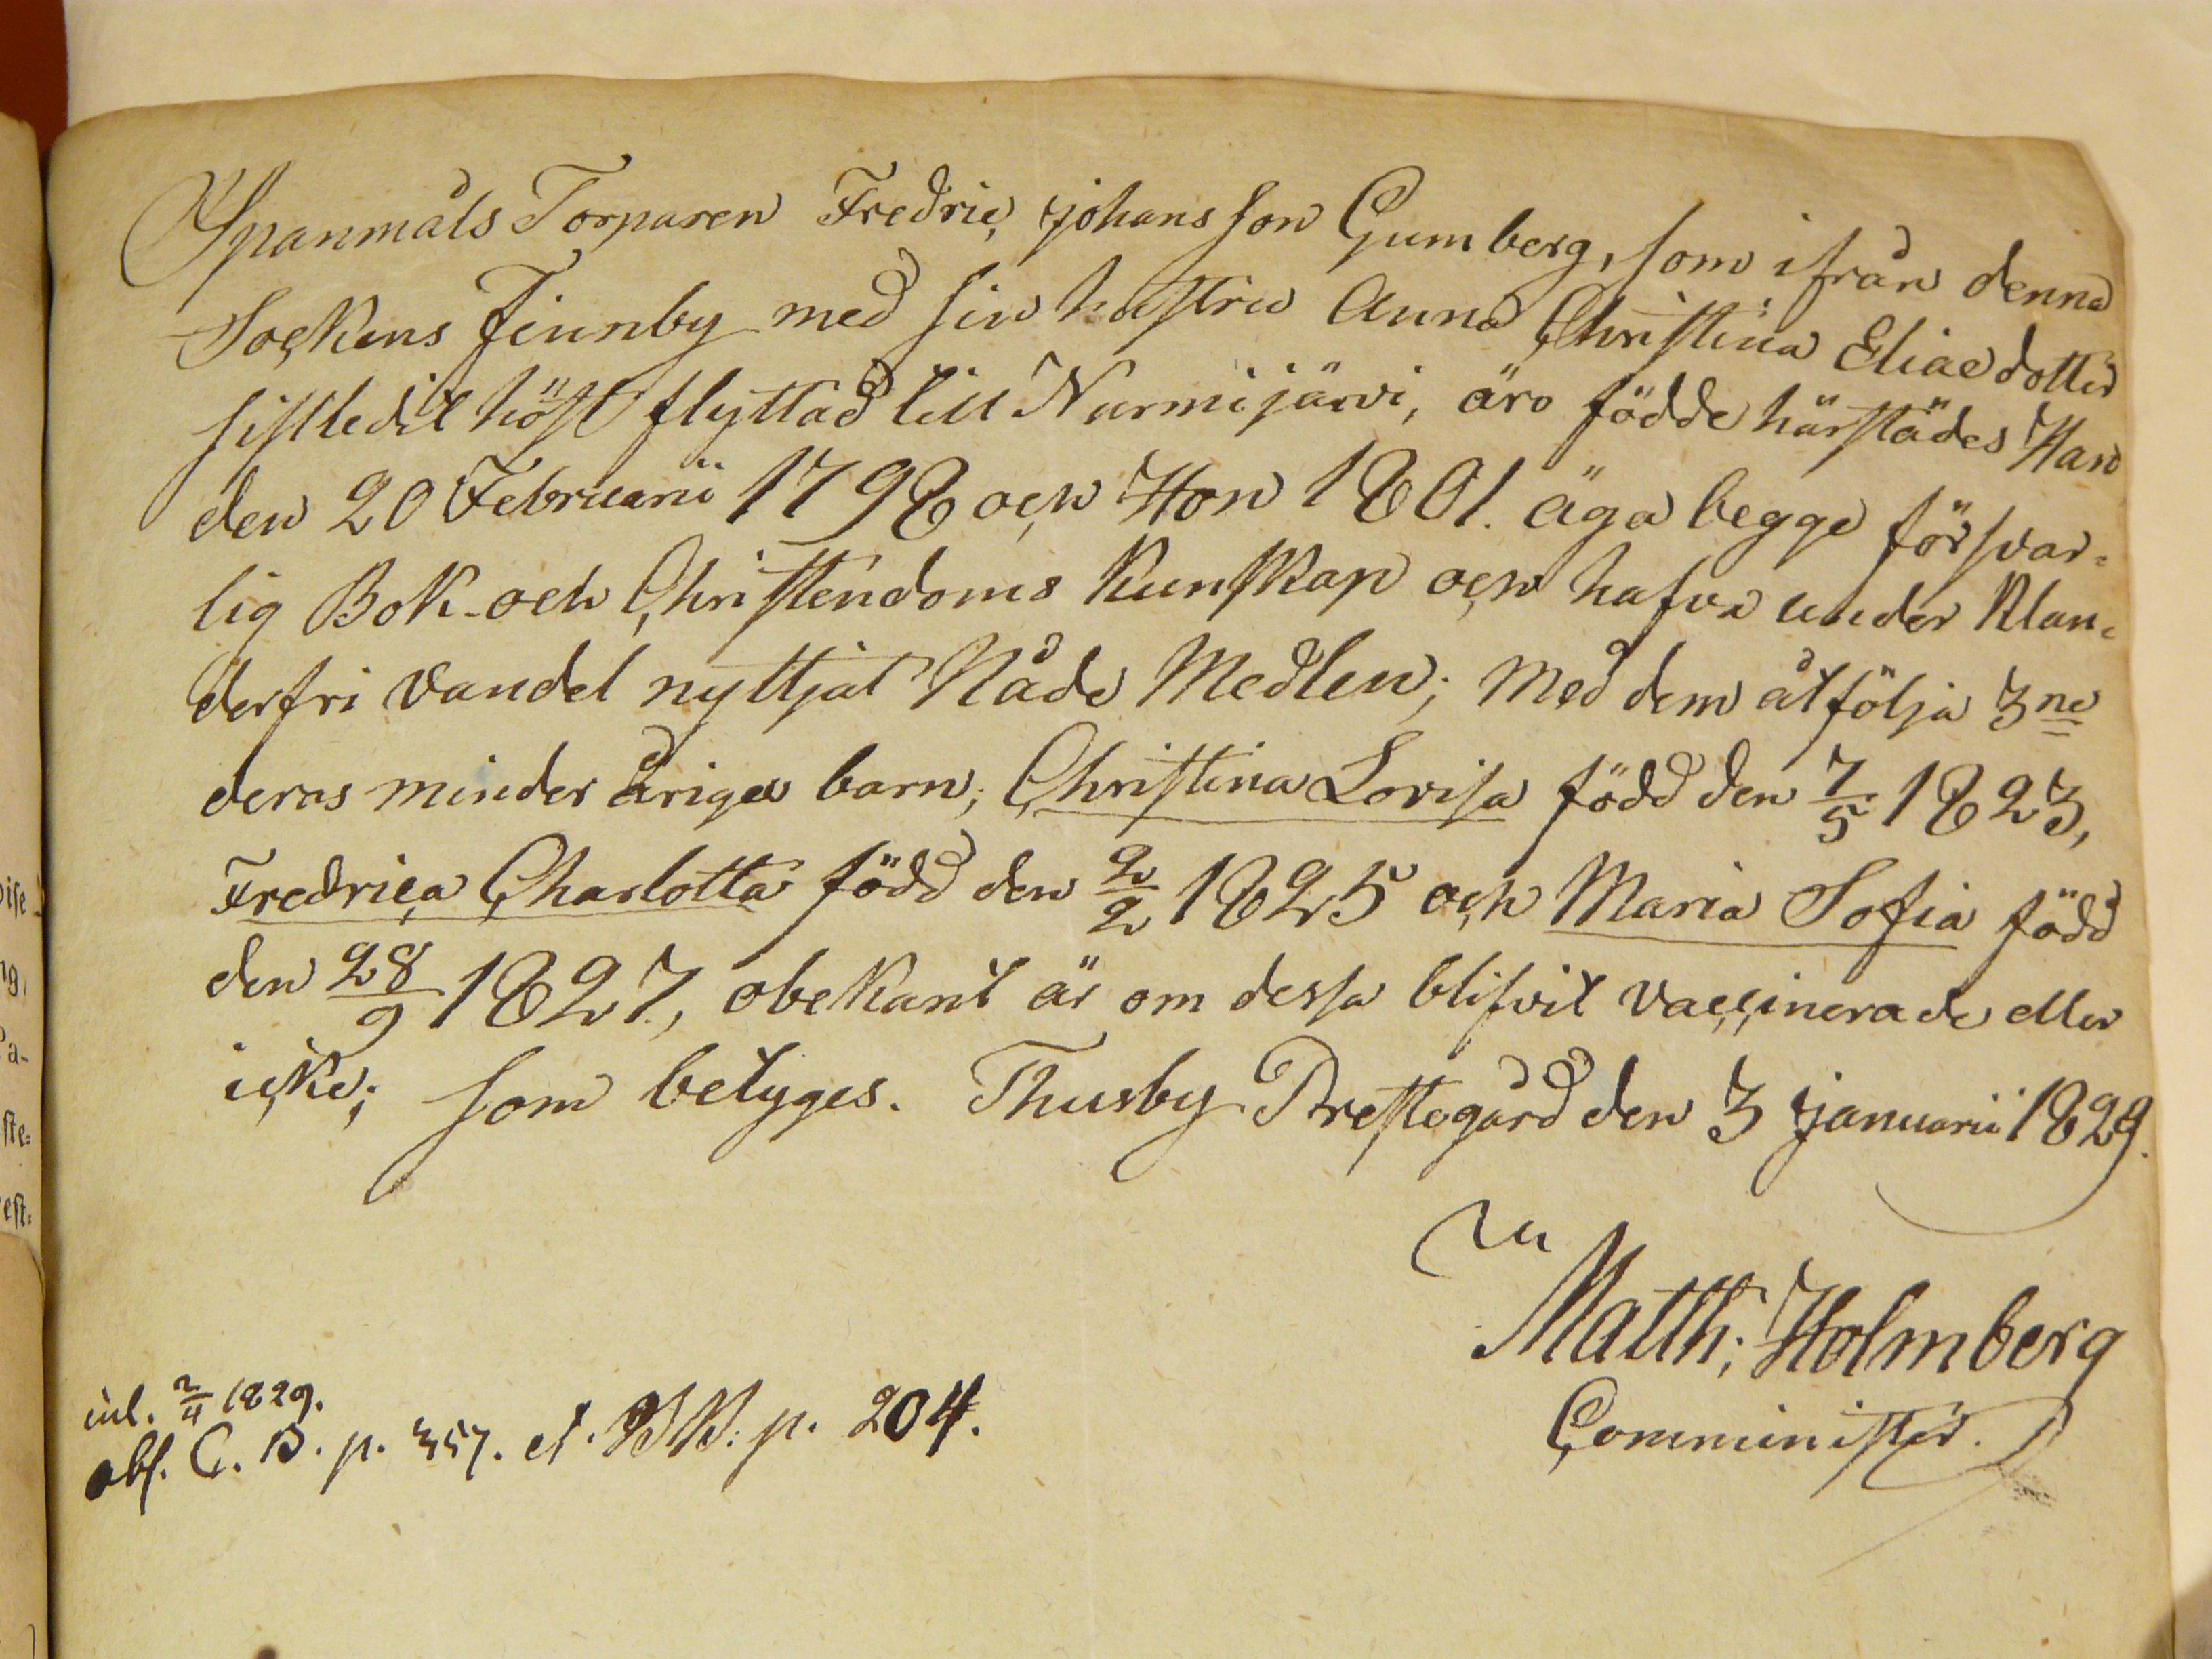 Spanmåls Torparen Fredric Johansson Gumberg, som ifrån denna
Sockens Finnby med sin hustru Anna Christina Eliae dotter
sistledit höst flyttad till Nurmijärvi, äro födde härstädes Han
den 20 Februarii 1798 och Hon 1801. äga begge försvar=
lig Bok- och Christendoms kunskap och hafva under klan=
derfri vandel nyttjat Nåde Medlen; Med dem åtfölja 3ne
deras minder åriga barn; Christina Lovisa född den 7/5 1823,
Fredrica Charlotta född den 2/2 1825 och Maria Sofia född
den 28/9 1827, obekant är om dessa blifvit vaccinerade eller
icke; som betyges. Thusby Prestegård den 3 Januarii 1829.
Matth; Holmberg
Comminister.
inl. 2/4 1829.
abs. C. B. p. 357. et. p. 204.
ise
ng,
a-
ste=
est=